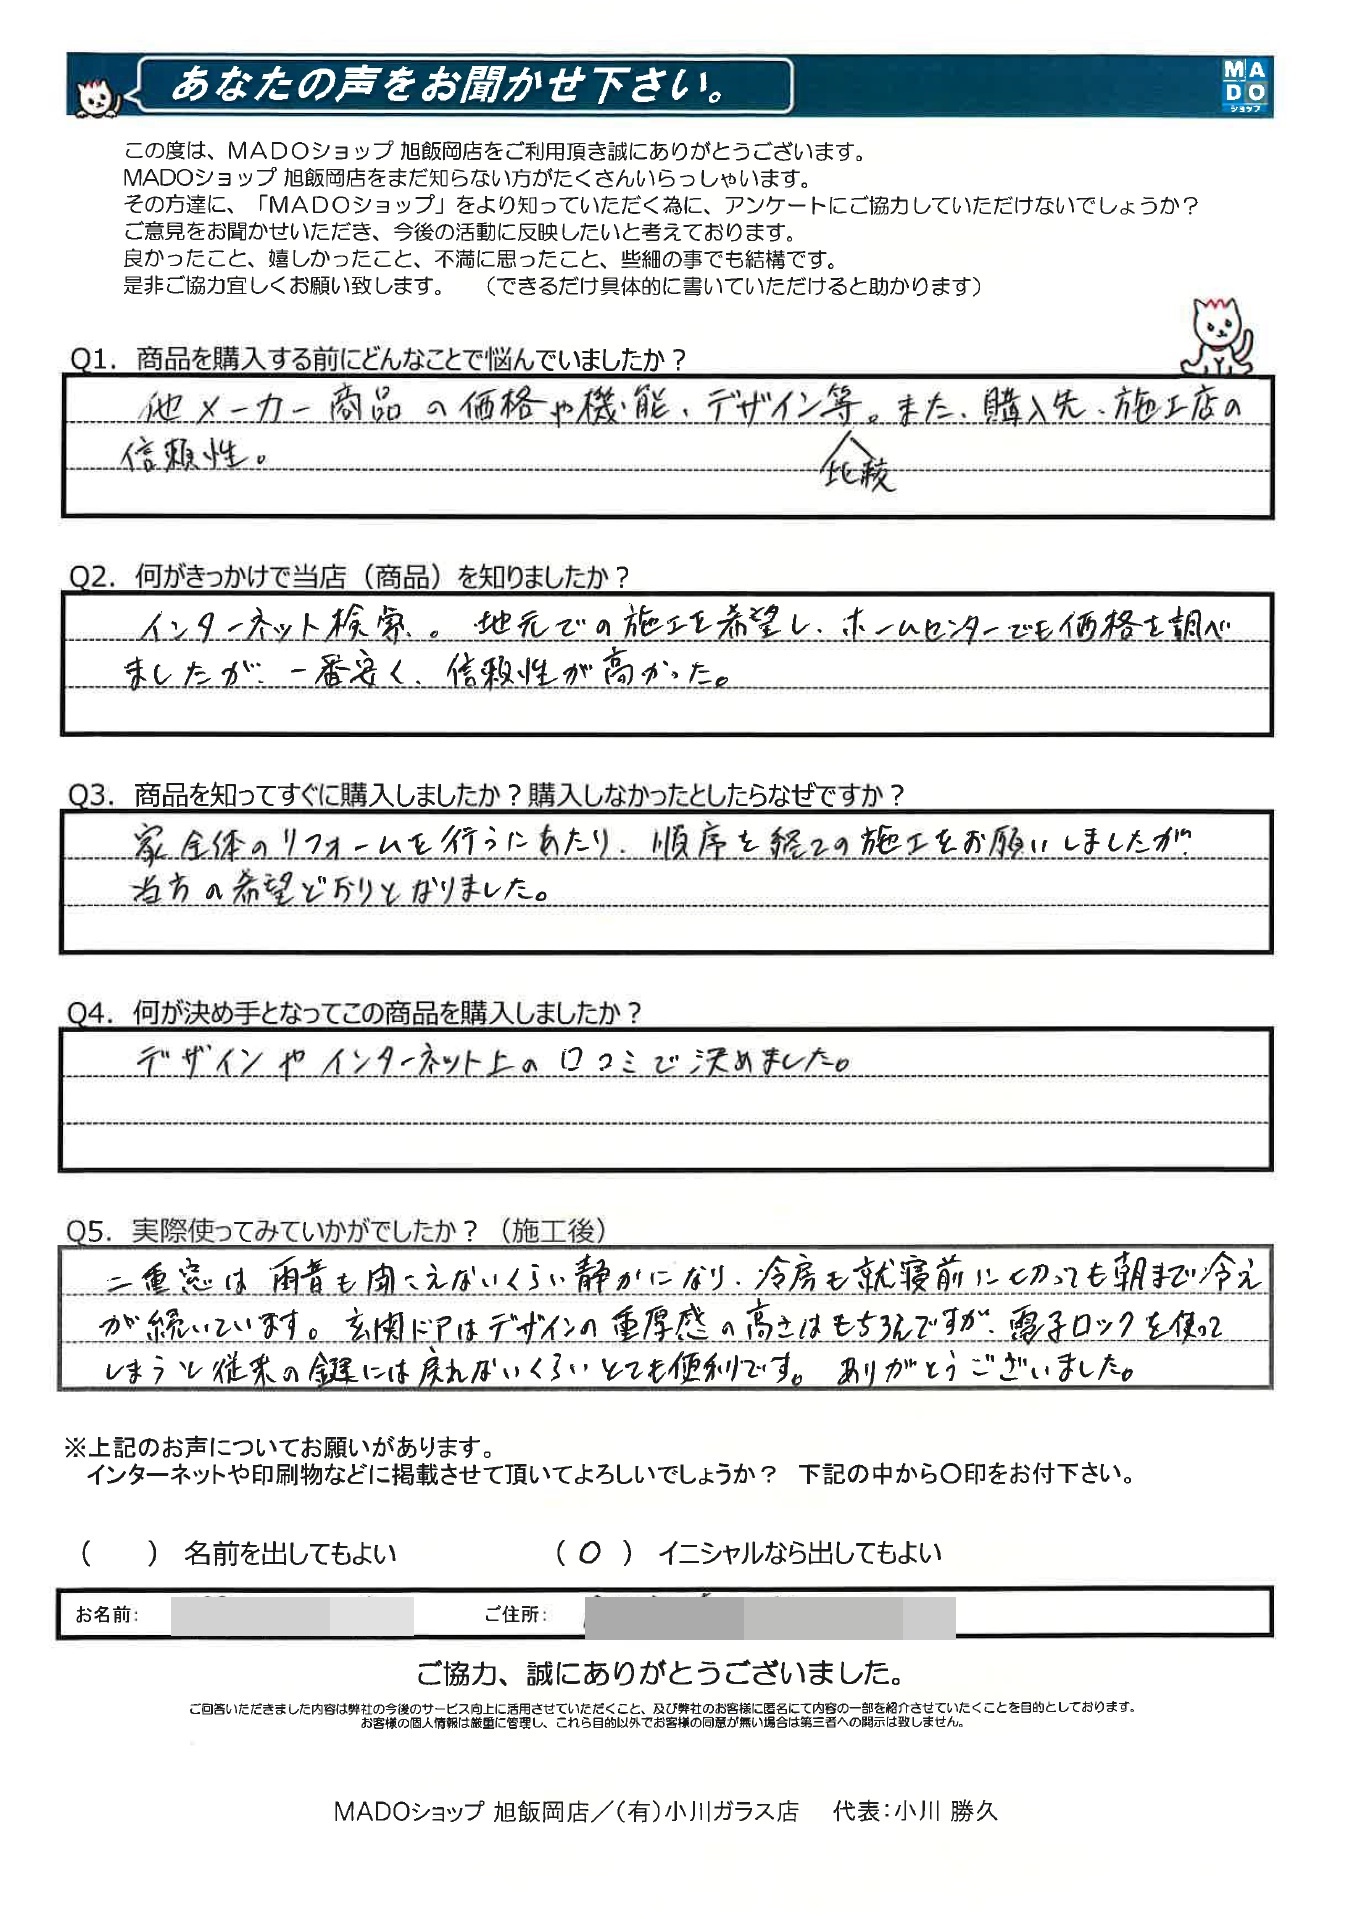 あなたの声をお聞かせ下さい。
MADO
ショップ
この度は、MADOショップ 旭飯岡店をご利用頂き誠にありがとうございます。
MADOショップ 旭飯岡店をまだ知らない方がたくさんいらっしゃいます。
その方達に、「MADOショップ」をより知っていただく為に、アンケートにご協力していただけないでしょうか？
ご意見をお聞かせいただき、今後の活動に反映したいと考えております。
良かったこと、嬉しかったこと、不満に思ったこと、些細の事でも結構です。
是非ご協力宜しくお願い致します。　（できるだけ具体的に書いていただけると助かります）
Q1. 商品を購入する前にどんなことで悩んでいましたか？
他メーカー商品の価格や機能、デザイン等。また、購入先、施工店の
信頼性。
比較
Q2. 何がきっかけで当店（商品）を知りましたか？
インターネット検索。地元での施工を希望し、ホームセンターでも価格を調べ
ましたが、一番安く、信頼性が高かった。
Q3. 商品を知ってすぐに購入しましたか？購入しなかったとしたらなぜですか？
家全体のリフォームを行うにあたり、順序を経ての施工をお願いしましたが、
当方の希望どおりとなりました。
Q4. 何が決め手となってこの商品を購入しましたか？
デザインやインターネット上の口コミで決めました。
Q5. 実際使ってみていかがでしたか？（施工後）
二重窓は雨音も聞こえないくらい静かになり、冷房も就寝前に切っても朝まで冷え
が続いています。玄関ドアはデザインの重厚感の高さはもちろんですが、電子ロックを使って
しまうと従来の鍵には戻れないくらいとても便利です。ありがとうございました。
※上記のお声についてお願いがあります。
インターネットや印刷物などに掲載させて頂いてよろしいでしょうか？　下記の中から〇印をお付下さい。
（　　）名前を出してもよい　（ 〇 ）イニシャルなら出してもよい
お名前：　ご住所：
ご協力、誠にありがとうございました。
ご回答いただきました内容は弊社の今後のサービス向上に活用させていただくこと、及び弊社のお客様に匿名にて内容の一部を紹介させていたくことを目的としております。
お客様の個人情報は厳重に管理し、これら目的以外でお客様の同意が無い場合は第三者への開示は致しません。
MADOショップ 旭飯岡店／（有）小川ガラス店　代表：小川 勝久